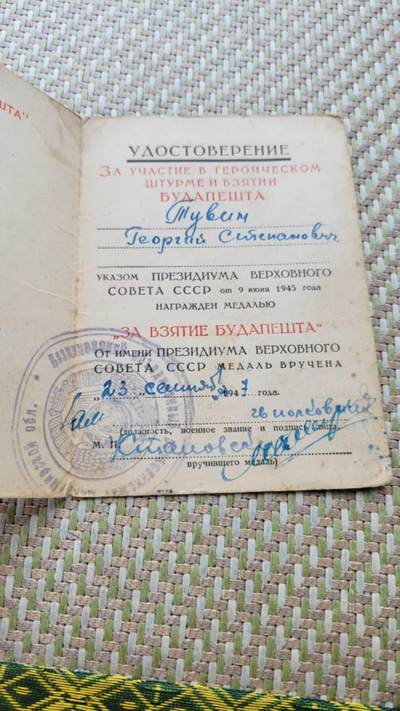 ШТА"
УДОСТОВЕРЕНИЕ
ЗА УЧАСТИЕ В ГЕРОИЧЕСКОМ
ШТУРМЕ И ВЗЯТИИ
БУДАПЕШТА
Тувин
Георгий Степанович
УКАЗОМ ПРЕЗИДИУМА ВЕРХОВНОГО
СОВЕТА СССР от 9 июня 1945 года
НАГРАЖДЕН МЕДАЛЬЮ
„ЗА ВЗЯТИЕ БУДАПЕШТА"
ОТ ИМЕНИ ПРЕЗИДИУМА ВЕРХОВНОГО
СОВЕТА СССР МЕДАЛЬ ВРУЧЕНА
„23" сентяб 1947 года.
(должность, военное звание и подпись лица,
М. П.
вручившего медаль)
обл.